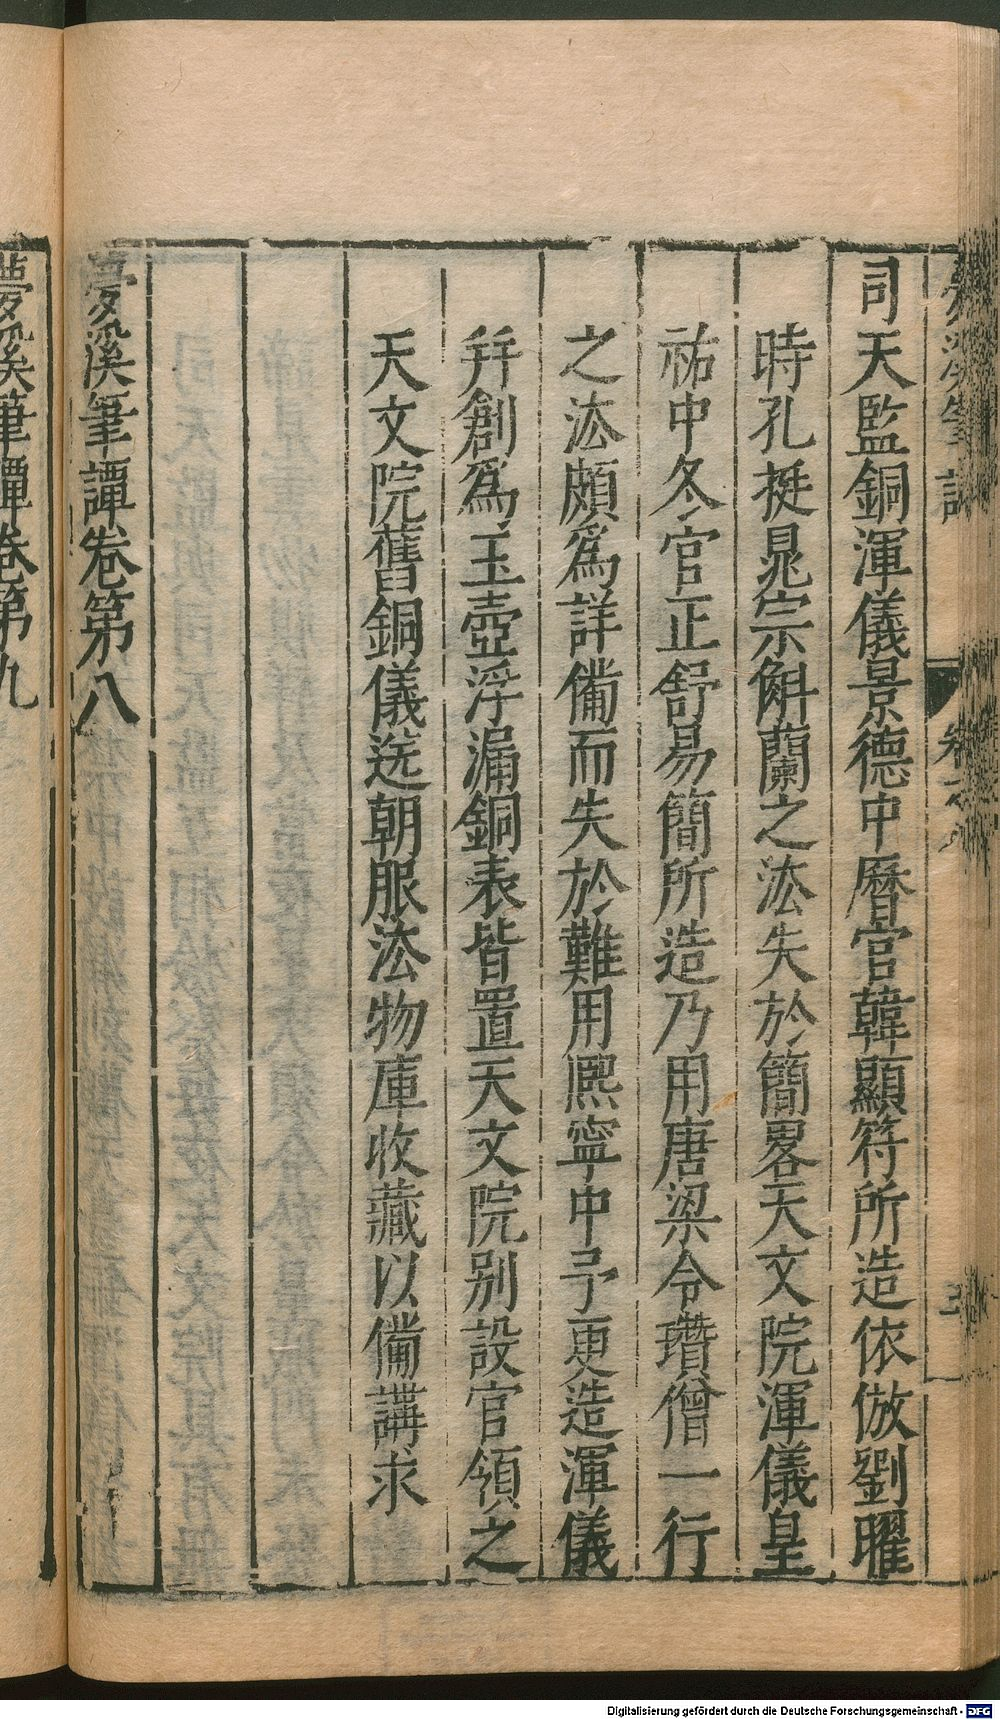 司天監銅渾儀景德中曆官韓顯符所造依倣劉曜
時孔挺晁崇斛蘭之法失於簡畧天文院渾儀皇
祐中冬官正舒易簡所造乃用唐梁令瓚僧一行
之法頗爲詳備而失於難用熙寧中予更造渾儀
幷創爲玉壺浮漏銅表皆置天文院別設官領之
天文院舊銅儀送朝服法物庫收藏以備講求
夢溪筆譚卷第八
夢溪筆譚卷第九
Digitalisierung gefördert durch die Deutsche Forschungsgemeinschaft - DFG